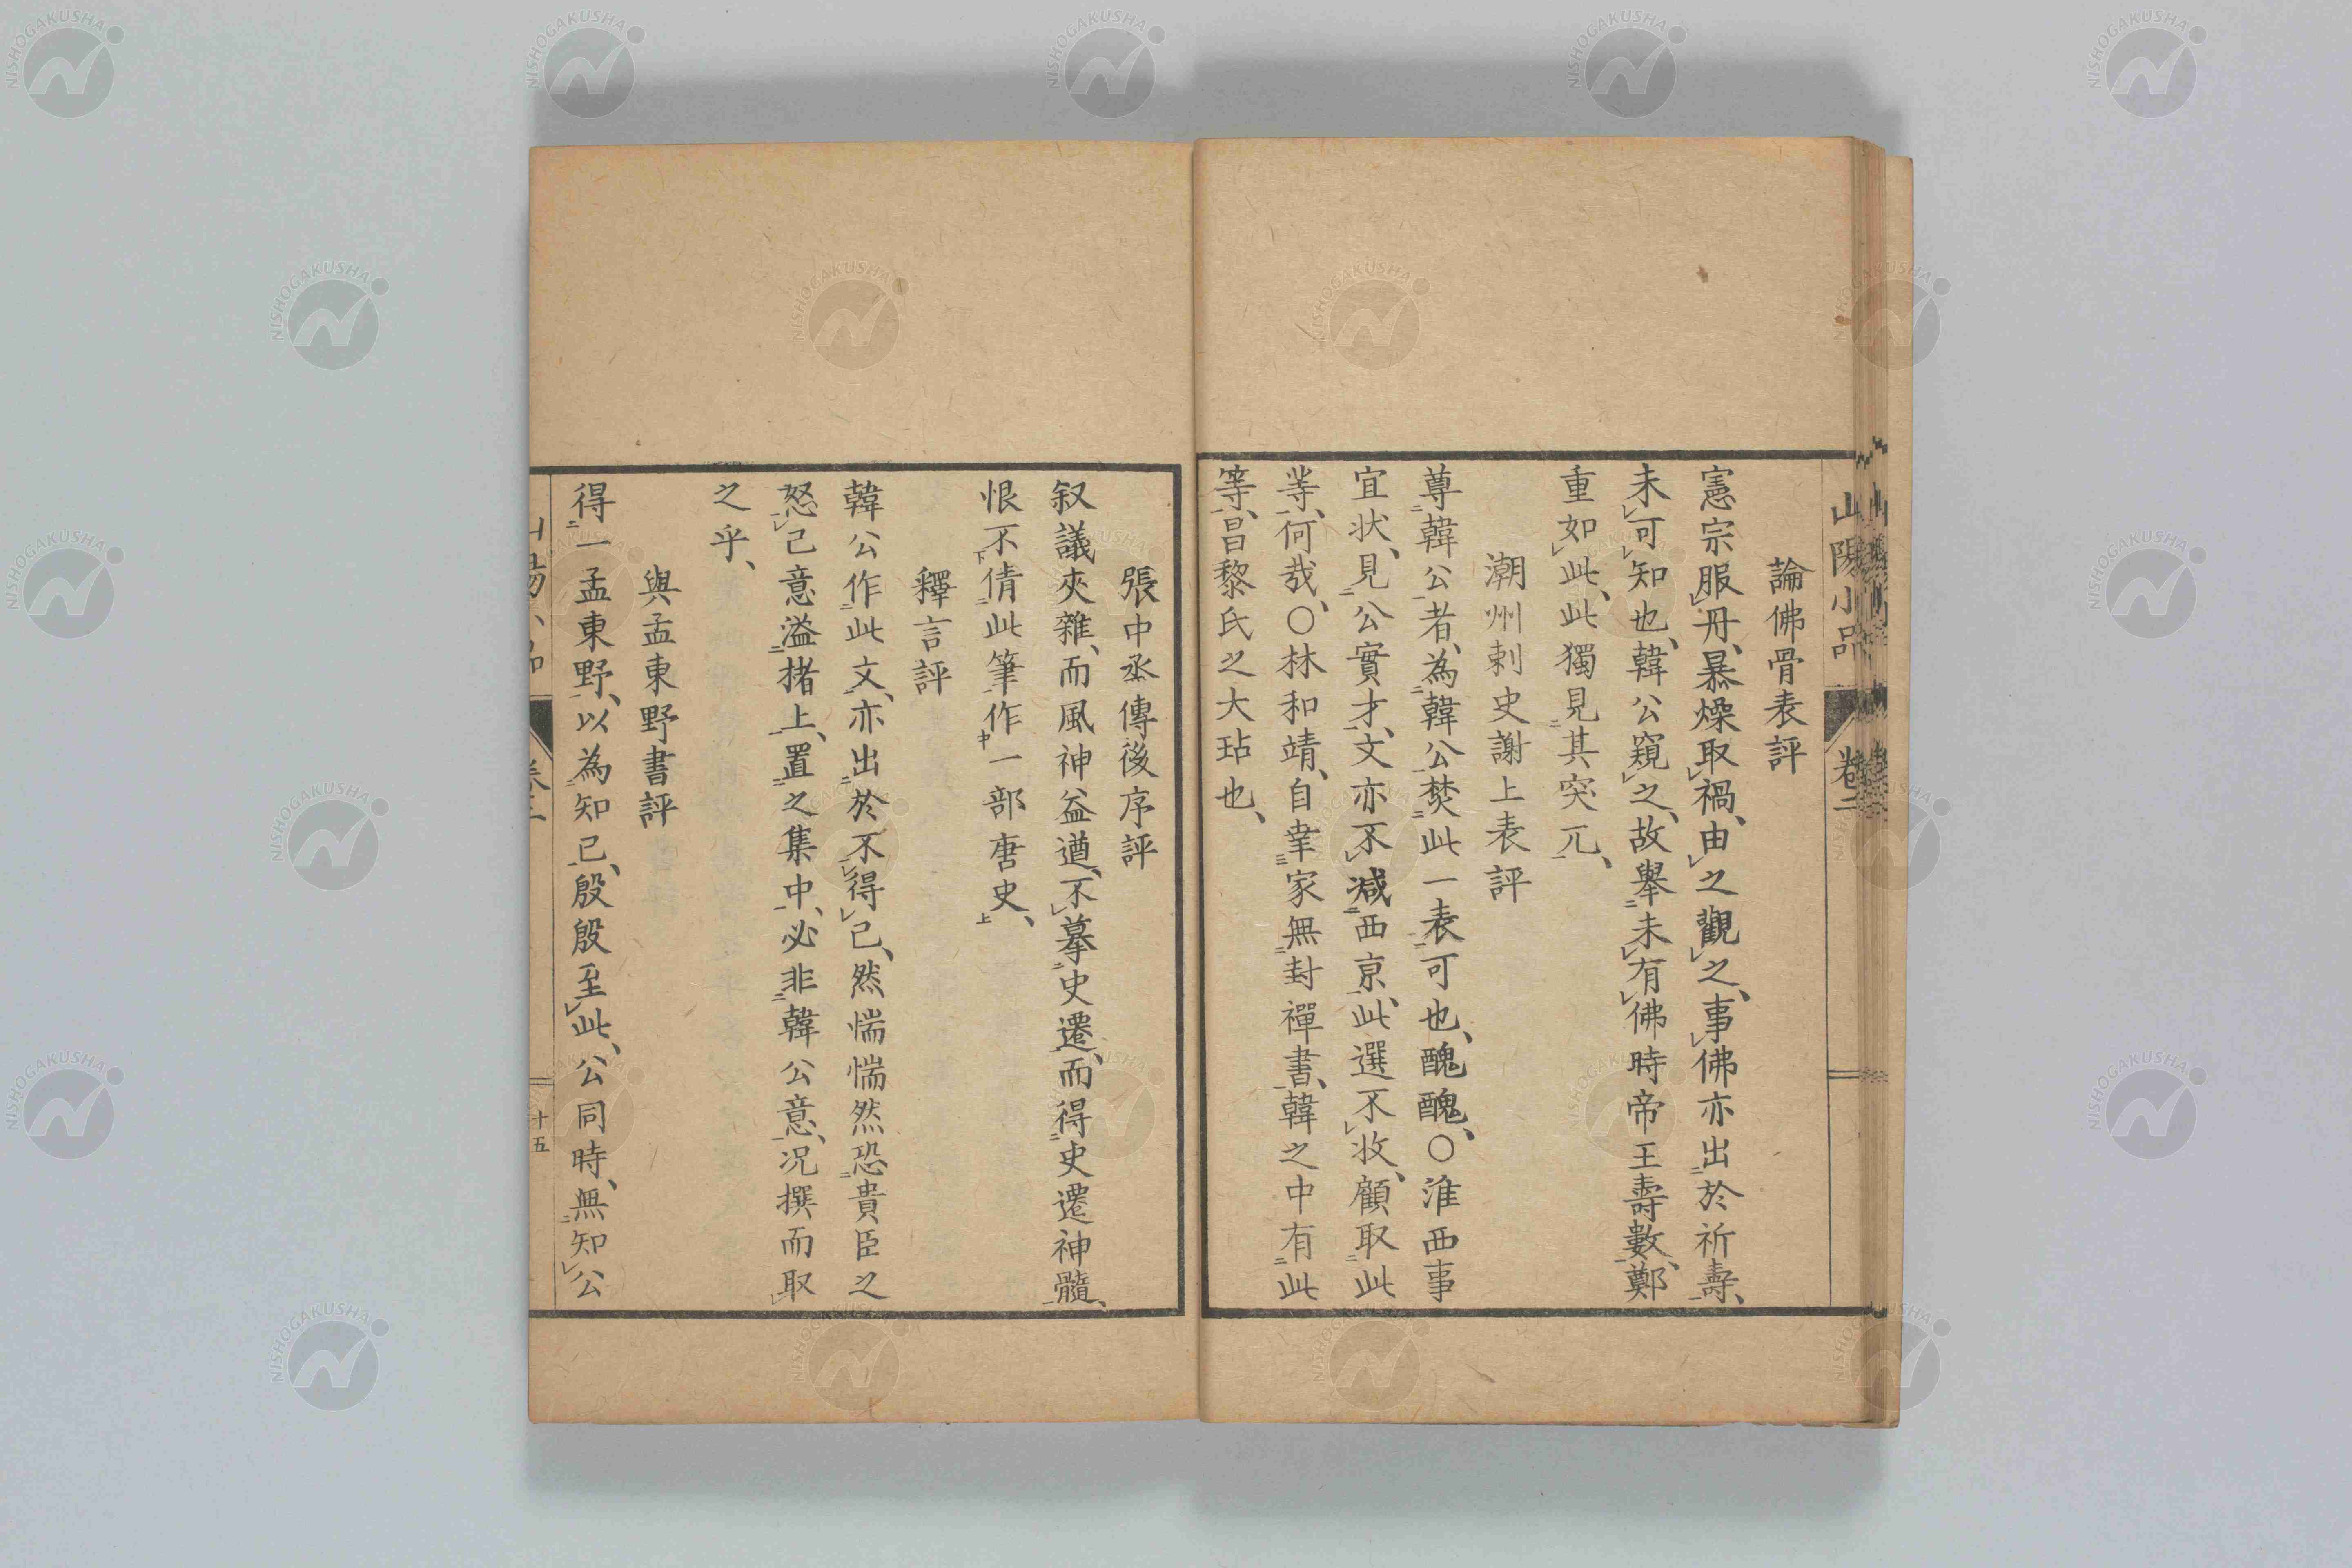 山陽小品 卷二
論佛骨表評
憲宗服丹、暴燥取禍、由之觀之、事佛亦出於祈壽、
未可知也、韓公窺之、故舉未有佛時帝王壽數、鄭
重如此、此獨見其突兀、
潮州刺史謝上表評
尊韓公者、為韓公焚此一表可也、醜醜、○淮西事
宜状、見公實才、文亦不減西京、此選不收、顧取此
等、何哉、○林和靖、自幸家無封禪書、韓之中有此
等、昌黎氏之大玷也、
張中丞傳後序評
叙議夾雜、而風神益遒、不摹史遷、而得史遷神髓、
恨不倩此筆作一部唐史、
下 中 上
釋言評
韓公作此文、亦出於不得已、然惴惴然恐貴臣之
怒、己意溢楮上、置之集中、必非韓公意、况撰而取
之乎、
與孟東野書評
得一孟東野、以為知己、殷殷至此、公同時、無知公
十五
NISHOGAKUSHA